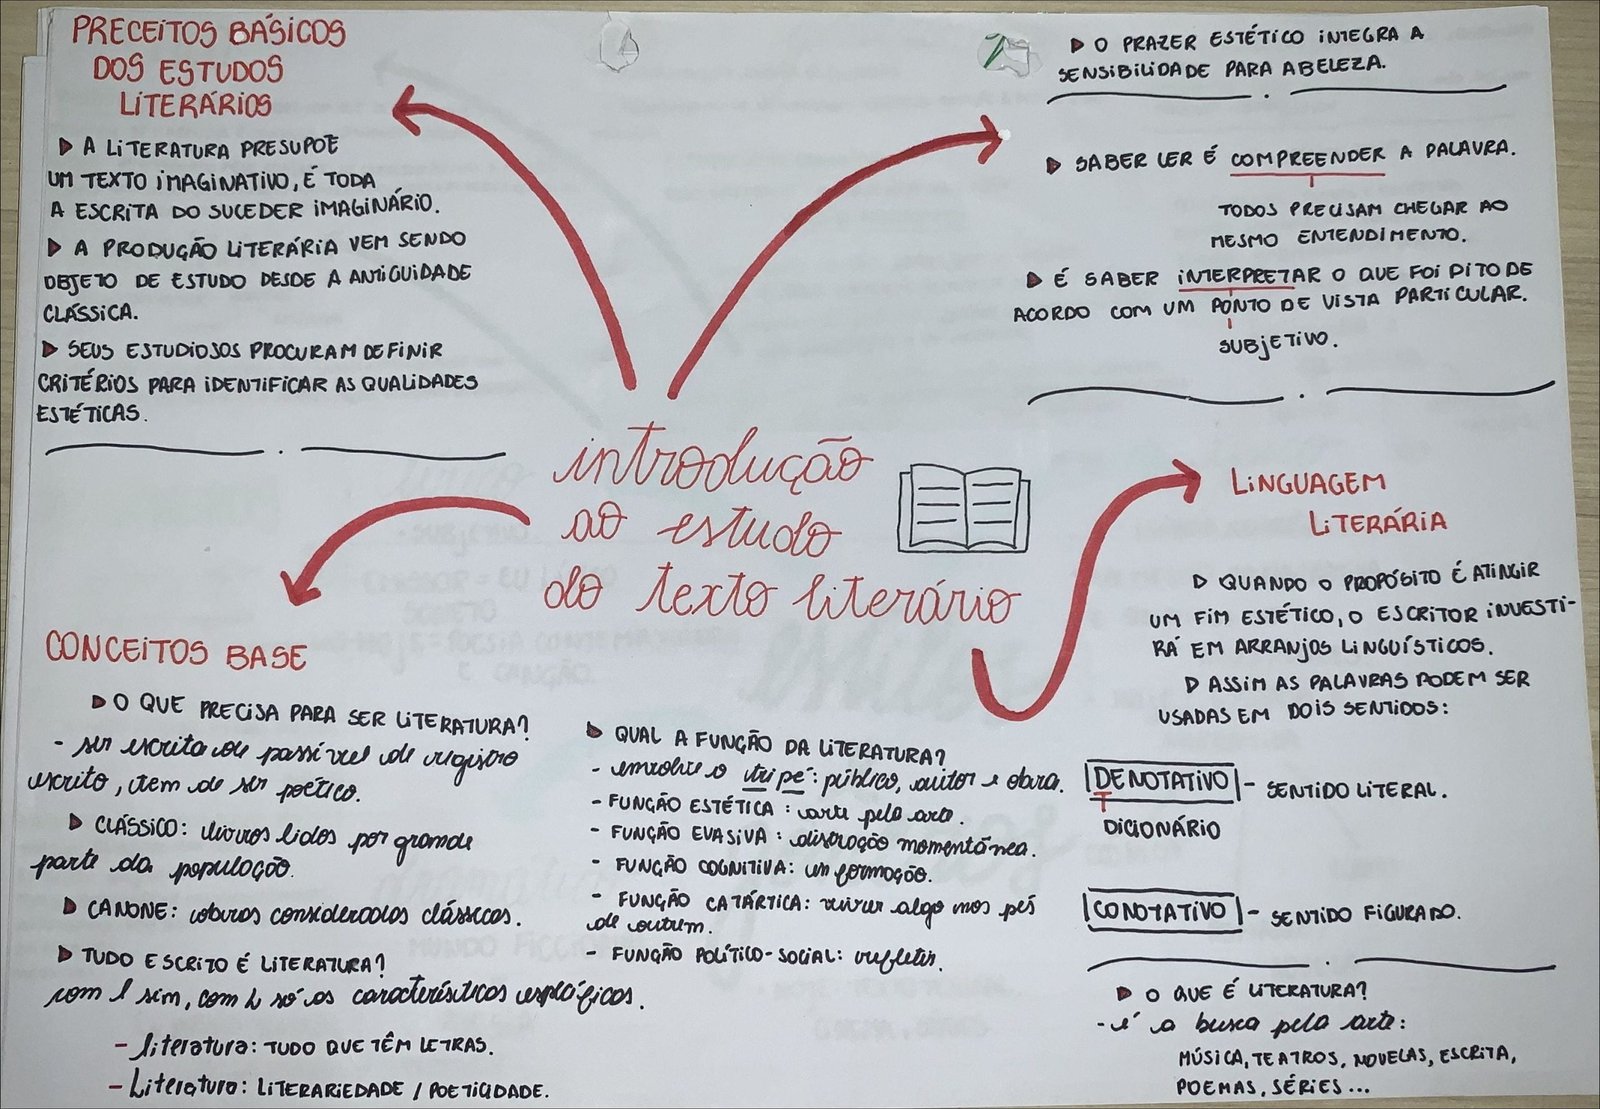 PRECEITOS BÁSICOS
DOS ESTUDOS
LITERÁRIOS
A LITERATURA PRESUPÕE
UM TEXTO IMAGINATIVO, É TODA
A ESCRITA DO SUCEDER IMAGINÁRIO.
A PRODUÇÃO LITERÁRIA VEM SENDO
OBJETO DE ESTUDO DESDE A ANTIGUIDADE
CLÁSSICA.
SEUS ESTUDIOSOS PROCURAM DEFINIR
CRITÉRIOS PARA IDENTIFICAR AS QUALIDADES
ESTÉTICAS.
O PRAZER ESTÉTICO INTEGRA A
SENSIBILIDADE PARA A BELEZA.
SABER LER É COMPREENDER A PALAVRA.
TODOS PRECISAM CHEGAR AO
MESMO ENTENDIMENTO.
É SABER INTERPRETAR O QUE FOI DITO DE
ACORDO COM UM PONTO DE VISTA PARTICULAR.
SUBJETIVO.
introdução
ao estudo
do texto literário
LINGUAGEM
LITERÁRIA
QUANDO O PROPÓSITO É ATINGIR
UM FIM ESTÉTICO, O ESCRITOR INVESTI-
RÁ EM ARRANJOS LINGUÍSTICOS.
ASSIM AS PALAVRAS PODEM SER
USADAS EM DOIS SENTIDOS:
DENOTATIVO - SENTIDO LITERAL.
DICIONÁRIO
CONOTATIVO - SENTIDO FIGURADO.
O QUE É LITERATURA?
- é a busca pela arte:
MÚSICA, TEATROS, NOVELAS, ESCRITA,
POEMAS, SÉRIES...
CONCEITOS BASE
O QUE PRECISA PARA SER LITERATURA?
- ser escrita ou passível de registro
escrito, tem de ser poético.
CLÁSSICO: livros lidos por grande
parte da população.
CANONE: obras consideradas clássicas.
TUDO ESCRITO É LITERATURA?
com l sim, com L só as características específicas.
- literatura: TUDO QUE TÊM LETRAS.
- Literatura: LITERARIEDADE / POETICIDADE.
QUAL A FUNÇÃO DA LITERATURA?
- envolve o tripé: público, autor e obra.
- FUNÇÃO ESTÉTICA: arte pela arte.
- FUNÇÃO EVASIVA: distração momentânea.
- FUNÇÃO COGNITIVA: informação.
- FUNÇÃO CATÁRTICA: viver algo nos pés
de outrem.
- FUNÇÃO POLÍTICO-SOCIAL: refletir.